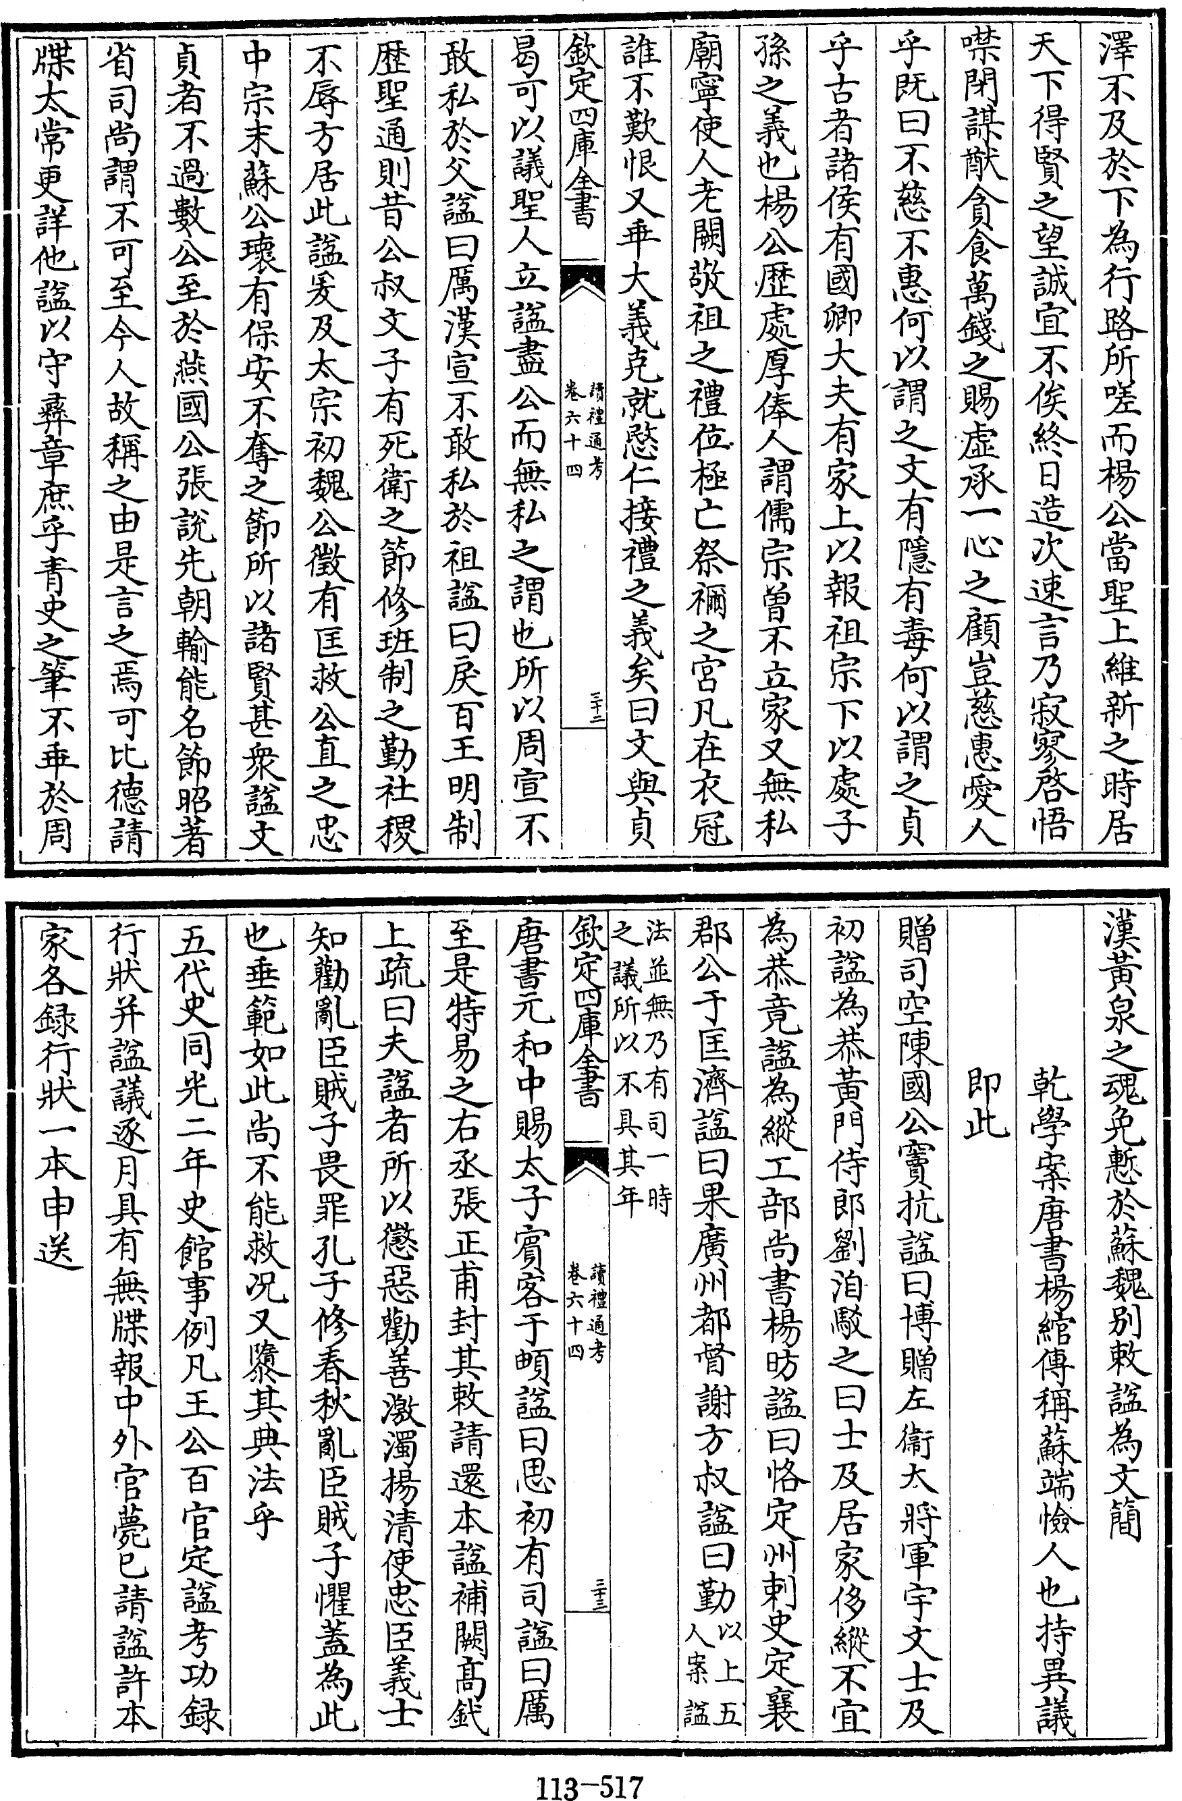 澤不及於下為行路所嗟而楊公當聖上維新之時居
天下得賢之望誠宜不俟終日造次速言乃寂寥啓悟
噤閉謀猷貪食萬錢之賜虛承一心之顧豈慈惠愛人
乎既曰不慈不惠何以謂之文有隱有毒何以謂之貞
乎古者諸侯有國卿大夫有家上以報祖宗下以處子
孫之義也楊公歷處厚俸人謂儒宗曽不立家又無私
廟寧使人老闕敬祖之禮位極亡祭禰之宮凡在衣冠
誰不歎恨又乖大義克就慜仁接禮之義矣曰文與貞
欽定四庫全書
讀禮通考
卷六十四
三十二
曷可以議聖人立諡盡公而無私之謂也所以周宣不
敢私於父諡曰厲漢宣不敢私於祖諡曰戾百王明制
歷聖通則昔公叔文子有死衛之節修班制之勤社稷
不辱方居此諡爰及太宗初魏公徵有匡救公直之忠
中宗末蘇公瓌有保安不奪之節所以諸賢甚衆諡文
貞者不過數公至於燕國公張說先朝輸能名節昭著
省司尚謂不可至今人故稱之由是言之焉可比德請
牒太常更詳他諡以守彝章庶乎青史之筆不垂於周
漢黃泉之魂免慙於蘇魏别敕諡為文簡
乾學案唐書楊綰傳稱蘇端憸人也持異議
即此
贈司空陳國公竇抗諡曰博贈左衛大將軍宇文士及
初諡為恭黃門侍郎劉洎駮之曰士及居家侈縱不宜
為恭竟諡為縱工部尚書楊昉諡曰恪定州刺史定襄
郡公于匡濟諡曰果廣州都督謝方叔諡曰勤以上五人案諡
法並無乃有司一時
之議所以不具其年
欽定四庫全書
讀禮通考
卷六十四
三十三
唐書元和中賜太子賓客于頔諡曰思初有司諡曰厲
至是特易之右丞張正甫封其敕請還本諡補闕高釴
上疏曰夫諡者所以懲惡勸善激濁揚清使忠臣義士
知勸亂臣賊子畏罪孔子修春秋亂臣賊子懼蓋為此
也垂範如此尚不能救况又隳其典法乎
五代史同光二年史館事例凡王公百官定諡考功録
行狀并諡議逐月具有無牒報中外官薨已請諡許本
家各録行狀一本申送
113-517